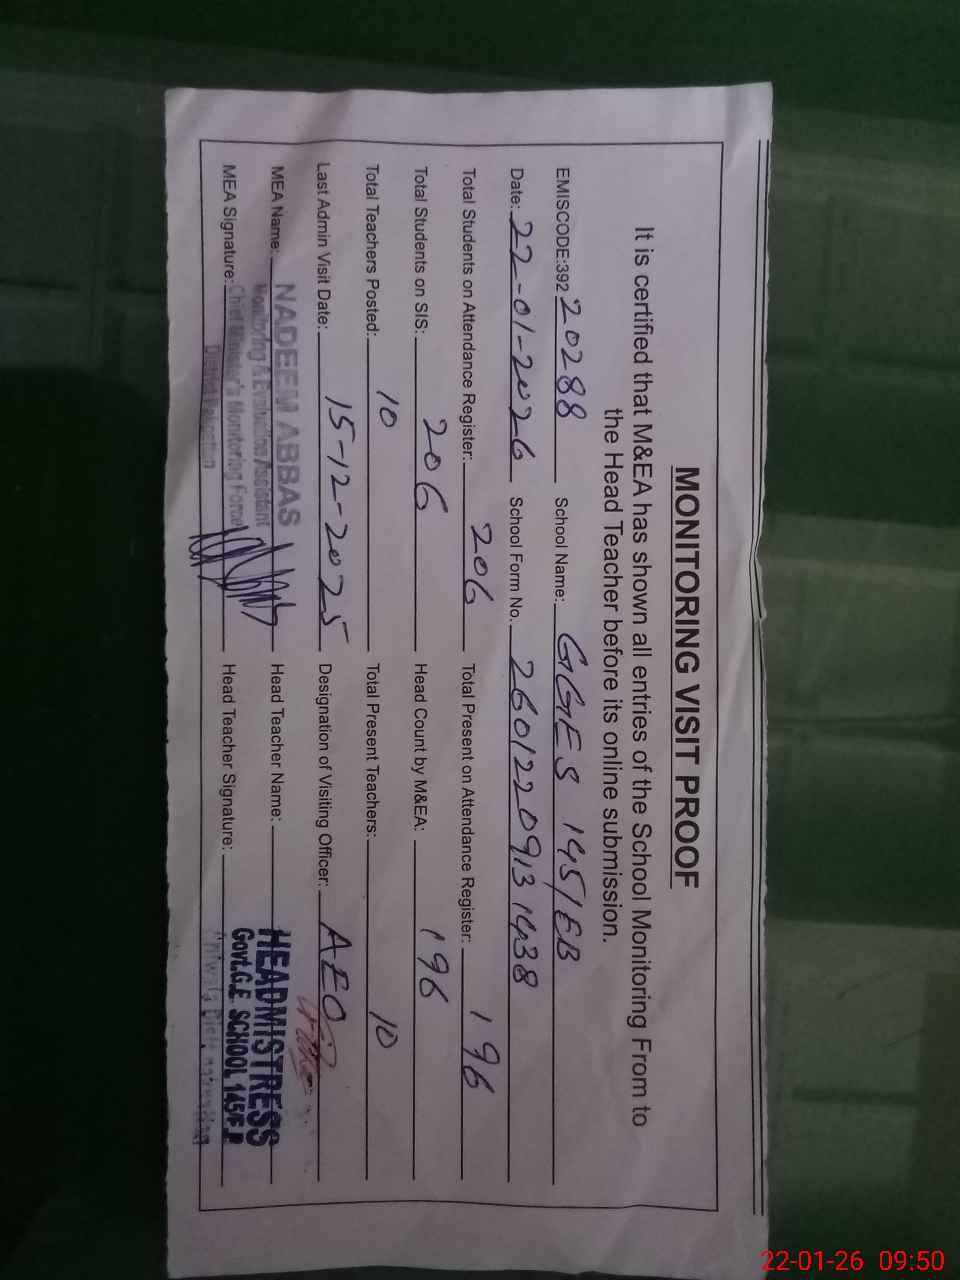 MONITORING VISIT PROOF
It is certified that M&EA has shown all entries of the School Monitoring From to
the Head Teacher before its online submission.
EMISCODE:392 20288 School Name: GGES 145/EB
Date: 22-01-2026 School Form No. 2601220913 1438
Total Students on Attendance Register: 206 Total Present on Attendance Register: 196
Total Students on SIS: 206 Head Count by M&EA: 196
Total Teachers Posted: 10 Total Present Teachers: 10
Last Admin Visit Date: 15-12-2025 Designation of Visiting Officer: AEO
MEA Name: NADEEM ABBAS Head Teacher Name: HEADMISTRESS
Monitoring & Evaluation Assistant
MEA Signature: Chief Minister's Monitoring Force Head Teacher Signature: Govt.G.E. SCHOOL 145/E.B
District Pakpattan
22-01-26 09:50